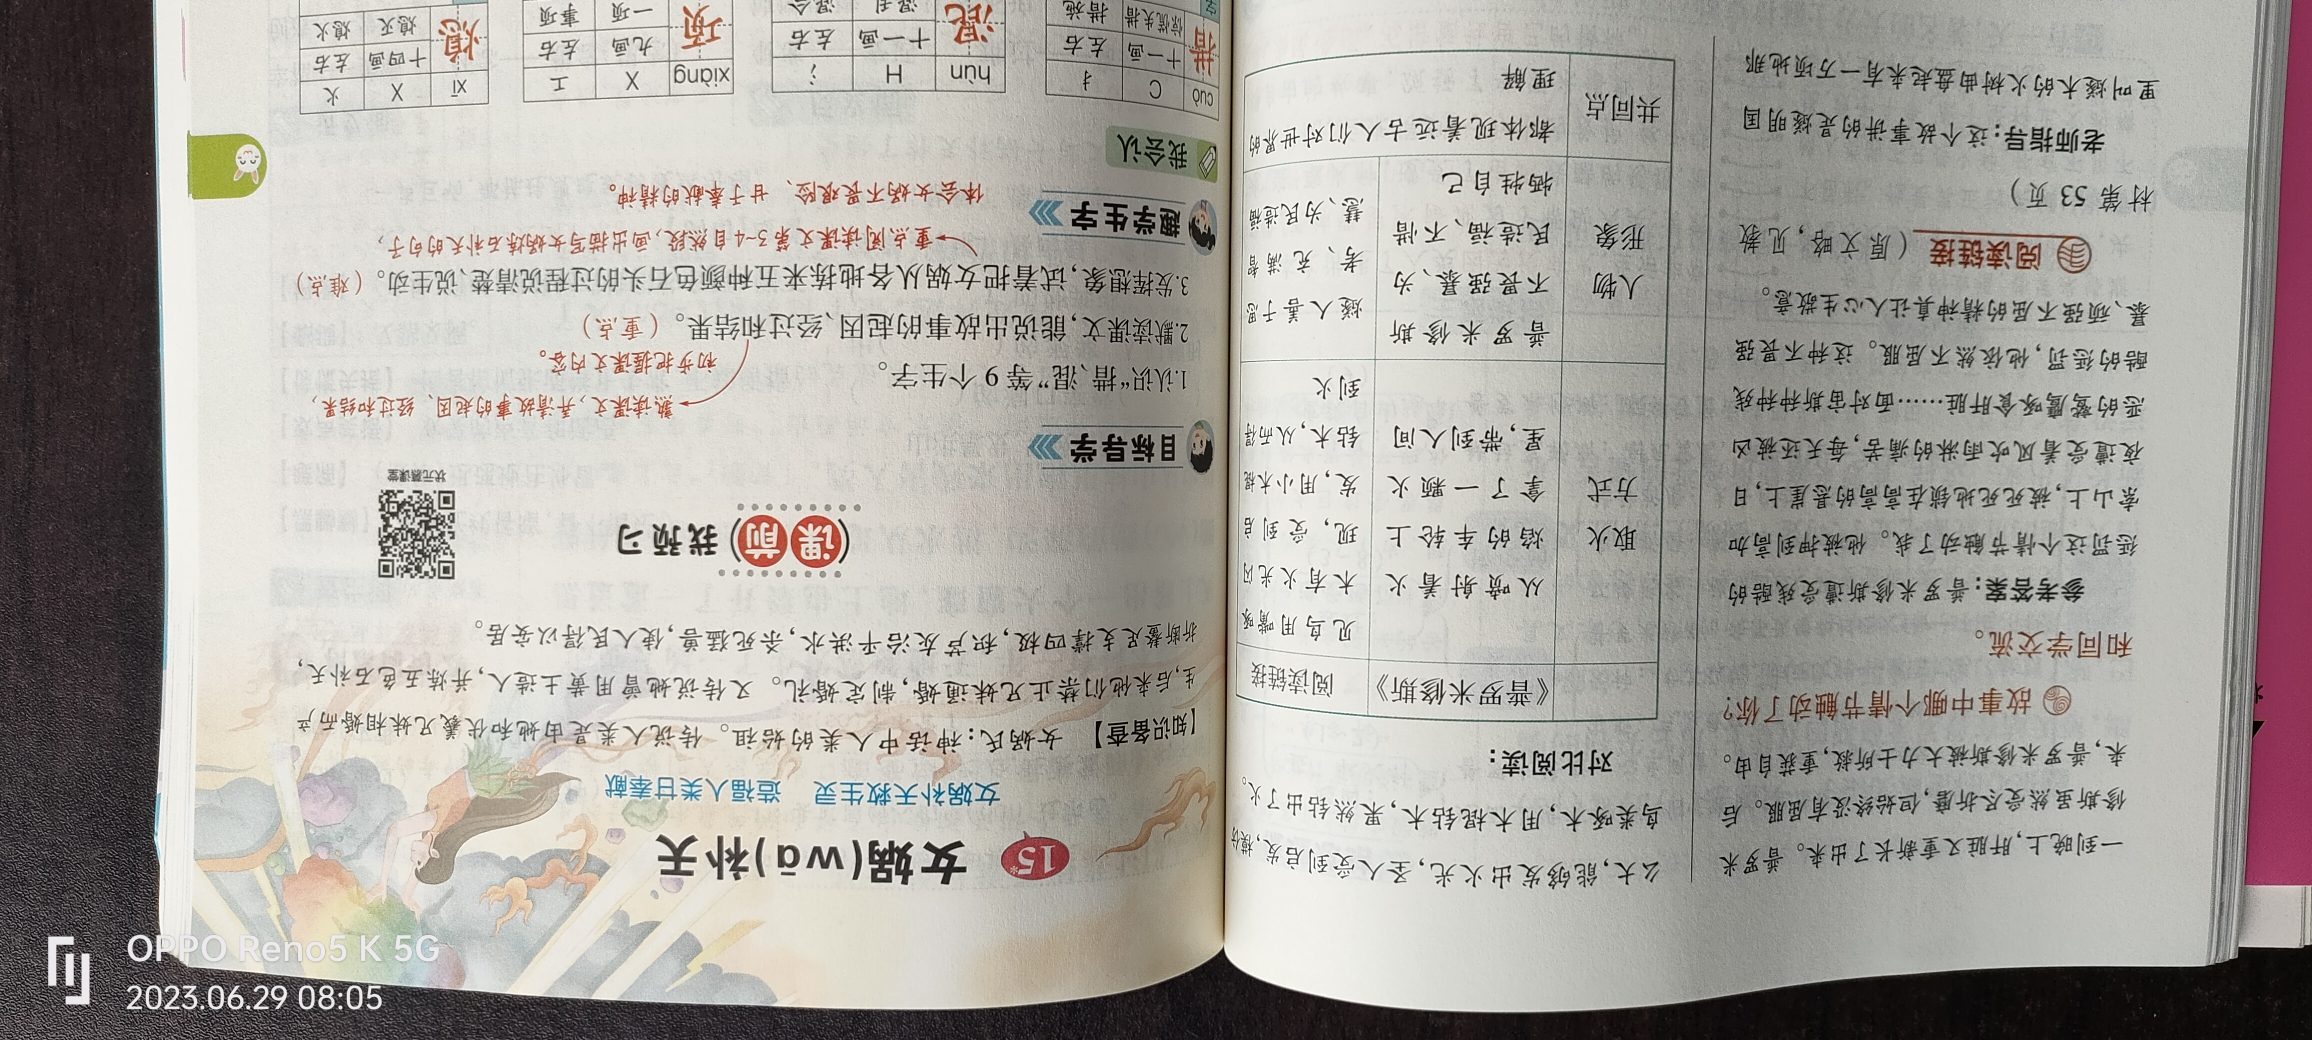 一到晚上,肝脏又重新长了出来。普罗米
修斯虽然受尽折磨,但始终没有屈服。后
来,普罗米修斯被大力士所救,重获自由。
故事中哪个情节触动了你?
和同学交流。
参考答案:普罗米修斯遭受残酷的
惩罚这个情节触动了我。他被押到高加
索山上,被死死地锁在高高的悬崖上,日
夜遭受着风吹雨淋的痛苦,每天还被凶
恶的鹫鹰啄食肝脏……面对宙斯种种残
酷的惩罚,他依然不屈服。这种不畏强
暴、顽强不屈的精神真让人心生敬意。
阅读链接(原文略,见教
材第 53 页)
老师指导:这个故事讲的是燧明国
里叫燧木的火树曲盘起来有一万顷地那
么大,能够发出火光,圣人受到启发,模仿
鸟类啄木,用木棍钻木,果然钻出了火。
对比阅读:
《普罗米修斯》 阅读链接
取火
方式
从喷射着火
焰的车轮上
拿了一颗火
星,带到人间
见鸟用嘴啄
木有火光闪
现,受到启
发,用小木棍
钻木,从而得
到火
人物
形象
普罗米修斯
不畏强暴、为
民造福、不惜
牺牲自己
燧人善于思
考、充满智
慧、为民造福
共同点
都体现着远古人们对世界的
理解
15* 女娲(wā)补天
女娲补天救生灵 造福人类日奉献
【知识备查】 女娲氏:神话中人类的始祖。传说人类是由她和伏羲兄妹相婚而产
生,后来他们禁止兄妹通婚,制定婚礼。又传说她曾用黄土造人,并炼五色石补天,
折断鳌足支撑四极,积芦灰治平洪水,杀死猛兽,使人民得以安居。
课前 我预习
状元慕课堂
目标导学
熟读课文,弄清故事的起因、经过和结果,
初步把握课文内容。
1.认识“措、混”等 9 个生字。
2.默读课文,能说出故事的起因、经过和结果。(重点)
3.发挥想象,试着把女娲从各地拣来五种颜色石头的过程说清楚、说生动。(难点)
重点阅读课文第 3~4 自然段,画出描写女娲炼石补天的句子,
体会女娲不畏艰险、甘于奉献的精神。
趣学生字
我会认
cuò C 扌
措 十一画 左右
惊慌失措 措施
hùn H 氵
混 十一画 左右
混乱 混合
xiàng X 工
项 九画 左右
一项 事项
xī X 火
熄 十四画 左右
熄灭 熄火
OPPO Reno5 K 5G
2023.06.29 08:05